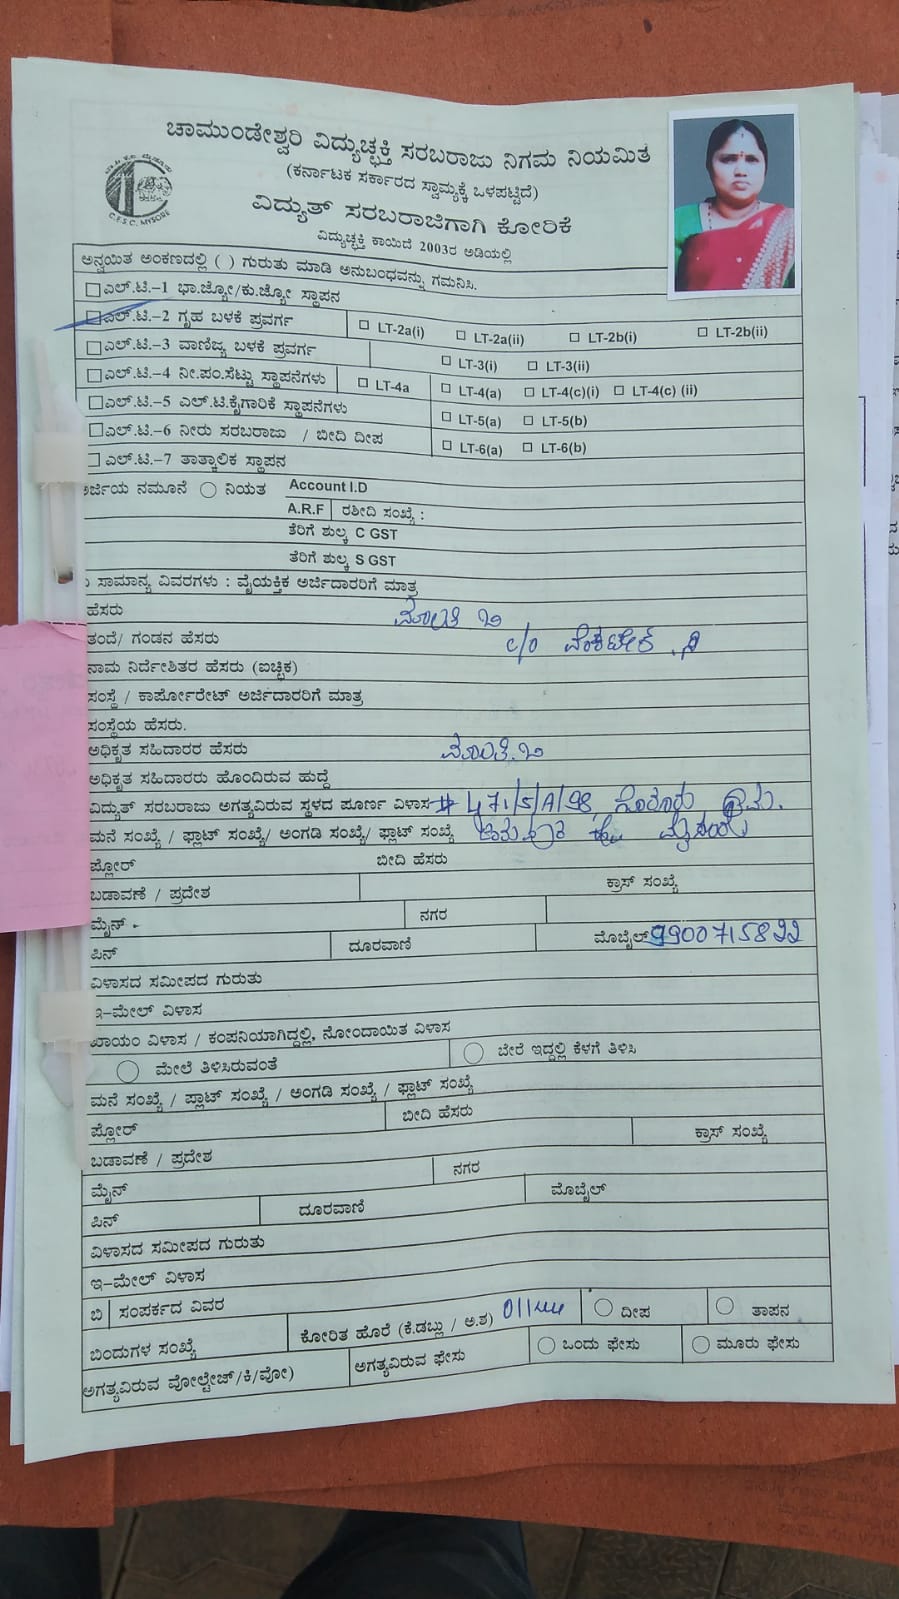 ಚಾಮುಂಡೇಶ್ವರಿ ವಿದ್ಯುಚ್ಛಕ್ತಿ ಸರಬರಾಜು ನಿಗಮ ನಿಯಮಿತ
(ಕರ್ನಾಟಕ ಸರ್ಕಾರದ ಸ್ವಾಮ್ಯಕ್ಕೆ ಒಳಪಟ್ಟಿದೆ)
C.E.S.C. MYSORE
ವಿದ್ಯುತ್ ಸರಬರಾಜಿಗಾಗಿ ಕೋರಿಕೆ
ವಿದ್ಯುಚ್ಛಕ್ತಿ ಕಾಯಿದೆ 2003ರ ಅಡಿಯಲ್ಲಿ
ಅನ್ವಯಿತ ಅಂಕಣದಲ್ಲಿ ( ) ಗುರುತು ಮಾಡಿ ಅನುಬಂಧವನ್ನು ಗಮನಿಸಿ.
ಎಲ್.ಟಿ.-1 ಭಾ.ಜ್ಯೋ/ಕು.ಜ್ಯೋ ಸ್ಥಾಪನ
ಎಲ್.ಟಿ.-2 ಗೃಹ ಬಳಕೆ ಪ್ರವರ್ಗ LT-2a(i) LT-2a(ii) LT-2b(i) LT-2b(ii)
ಎಲ್.ಟಿ.-3 ವಾಣಿಜ್ಯ ಬಳಕೆ ಪ್ರವರ್ಗ LT-3(i) LT-3(ii)
ಎಲ್.ಟಿ.-4 ನೀ.ಪಂ.ಸೆಟ್ಟು ಸ್ಥಾಪನೆಗಳು LT-4a LT-4(a) LT-4(c)(i) LT-4(c) (ii)
ಎಲ್.ಟಿ.-5 ಎಲ್.ಟಿ.ಕೈಗಾರಿಕೆ ಸ್ಥಾಪನೆಗಳು LT-5(a) LT-5(b)
ಎಲ್.ಟಿ.-6 ನೀರು ಸರಬರಾಜು / ಬೀದಿ ದೀಪ LT-6(a) LT-6(b)
ಎಲ್.ಟಿ.-7 ತಾತ್ಕಾಲಿಕ ಸ್ಥಾಪನ
ಅರ್ಜಿಯ ನಮೂನೆ ನಿಯತ Account I.D
A.R.F ರಶೀದಿ ಸಂಖ್ಯೆ :
ತೆರಿಗೆ ಶುಲ್ಕ C GST
ತೆರಿಗೆ ಶುಲ್ಕ S GST
ಸಾಮಾನ್ಯ ವಿವರಗಳು : ವೈಯಕ್ತಿಕ ಅರ್ಜಿದಾರರಿಗೆ ಮಾತ್ರ
ಹೆಸರು
ತಂದೆ/ ಗಂಡನ ಹೆಸರು c/o
ನಾಮ ನಿರ್ದೇಶಿತರ ಹೆಸರು (ಐಚ್ಛಿಕ)
ಸಂಸ್ಥೆ / ಕಾರ್ಪೋರೇಟ್ ಅರ್ಜಿದಾರರಿಗೆ ಮಾತ್ರ
ಸಂಸ್ಥೆಯ ಹೆಸರು.
ಅಧಿಕೃತ ಸಹಿದಾರರ ಹೆಸರು
ಅಧಿಕೃತ ಸಹಿದಾರರು ಹೊಂದಿರುವ ಹುದ್ದೆ
ವಿದ್ಯುತ್ ಸರಬರಾಜು ಅಗತ್ಯವಿರುವ ಸ್ಥಳದ ಪೂರ್ಣ ವಿಳಾಸ # 471/5/A/98
ಮನೆ ಸಂಖ್ಯೆ / ಫ್ಲಾಟ್ ಸಂಖ್ಯೆ/ ಅಂಗಡಿ ಸಂಖ್ಯೆ/ ಫ್ಲಾಟ್ ಸಂಖ್ಯೆ
ಫ್ಲೋರ್ ಬೀದಿ ಹೆಸರು
ಬಡಾವಣೆ / ಪ್ರದೇಶ ಕ್ರಾಸ್ ಸಂಖ್ಯೆ
ಮೈನ್ ನಗರ
ಪಿನ್ ದೂರವಾಣಿ ಮೊಬೈಲ್ 9900715822
ವಿಳಾಸದ ಸಮೀಪದ ಗುರುತು
ಇ-ಮೇಲ್ ವಿಳಾಸ
ಖಾಯಂ ವಿಳಾಸ / ಕಂಪನಿಯಾಗಿದ್ದಲ್ಲಿ, ನೋಂದಾಯಿತ ವಿಳಾಸ
ಮೇಲೆ ತಿಳಿಸಿರುವಂತೆ ಬೇರೆ ಇದ್ದಲ್ಲಿ ಕೆಳಗೆ ತಿಳಿಸಿ
ಮನೆ ಸಂಖ್ಯೆ / ಪ್ಲಾಟ್ ಸಂಖ್ಯೆ / ಅಂಗಡಿ ಸಂಖ್ಯೆ / ಫ್ಲಾಟ್ ಸಂಖ್ಯೆ
ಫ್ಲೋರ್ ಬೀದಿ ಹೆಸರು
ಬಡಾವಣೆ / ಪ್ರದೇಶ ಕ್ರಾಸ್ ಸಂಖ್ಯೆ
ಮೈನ್ ನಗರ
ಪಿನ್ ದೂರವಾಣಿ ಮೊಬೈಲ್
ವಿಳಾಸದ ಸಮೀಪದ ಗುರುತು
ಇ-ಮೇಲ್ ವಿಳಾಸ
ಬಿ ಸಂಪರ್ಕದ ವಿವರ
ಬಿಂದುಗಳ ಸಂಖ್ಯೆ ಕೋರಿತ ಹೊರೆ (ಕೆ.ಡಬ್ಲು / ಅ.ಶ) ದೀಪ ತಾಪನ
ಅಗತ್ಯವಿರುವ ವೋಲ್ಟೇಜ್/ಕಿ/ವೋ) ಅಗತ್ಯವಿರುವ ಫೇಸು ಒಂದು ಫೇಸು ಮೂರು ಫೇಸು